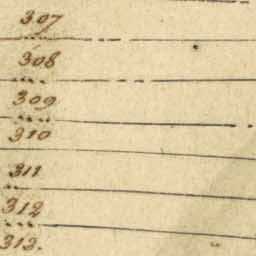 307
308
309
310
311
312
313.